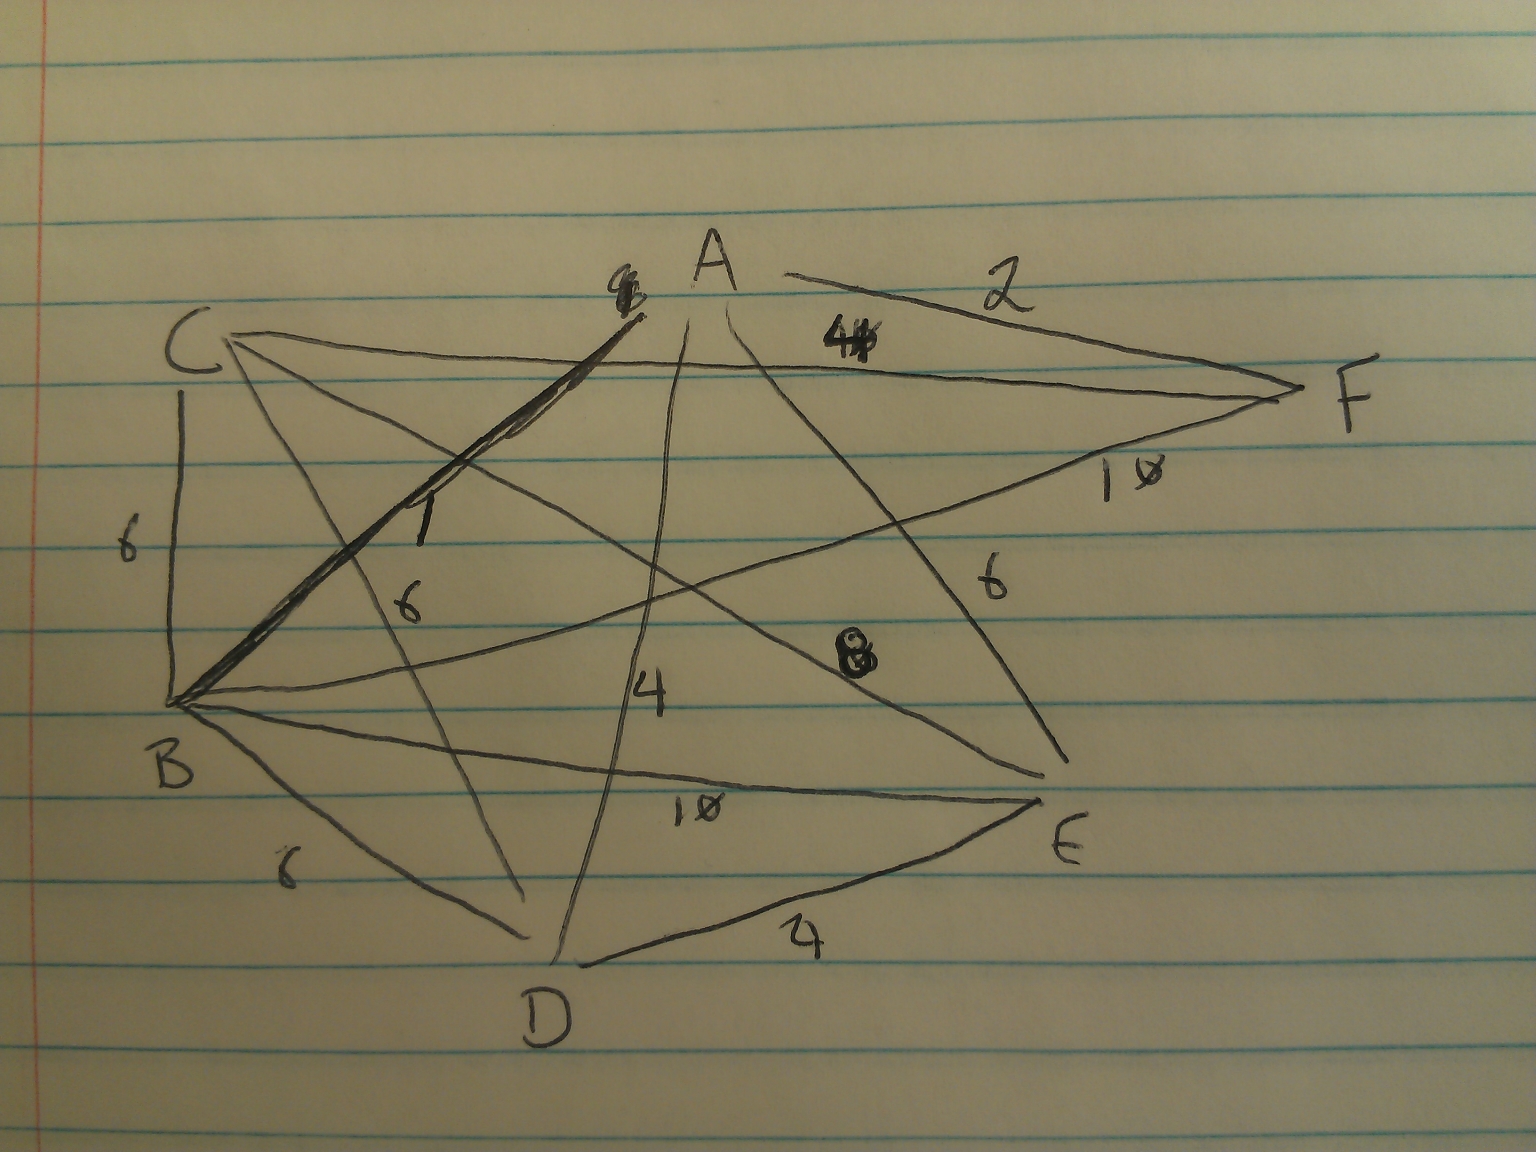 A
2
C
4
F
10
6
1
6
6
8
4
B
10
E
6
4
D